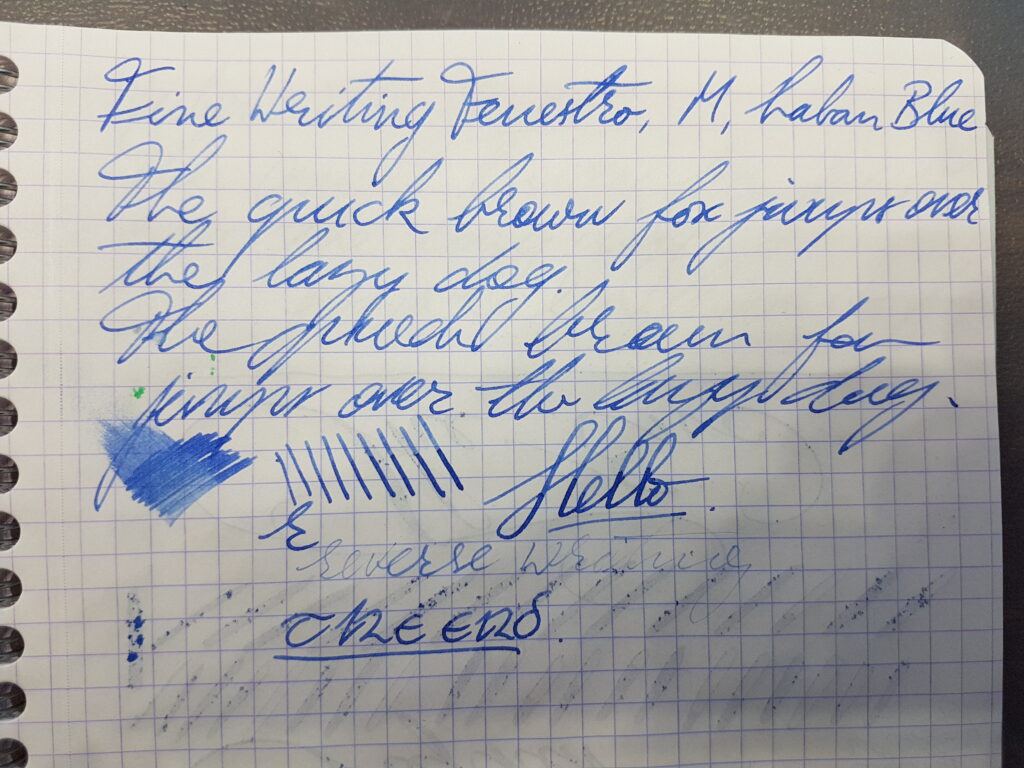 Fine Writing Fenestro, M, Laban Blue
The quick brown fox jumps over
the lazy dog.
The quick brown fox
jumps over the lazy dog.
Hello.
E
Reverse Writing
THE END.